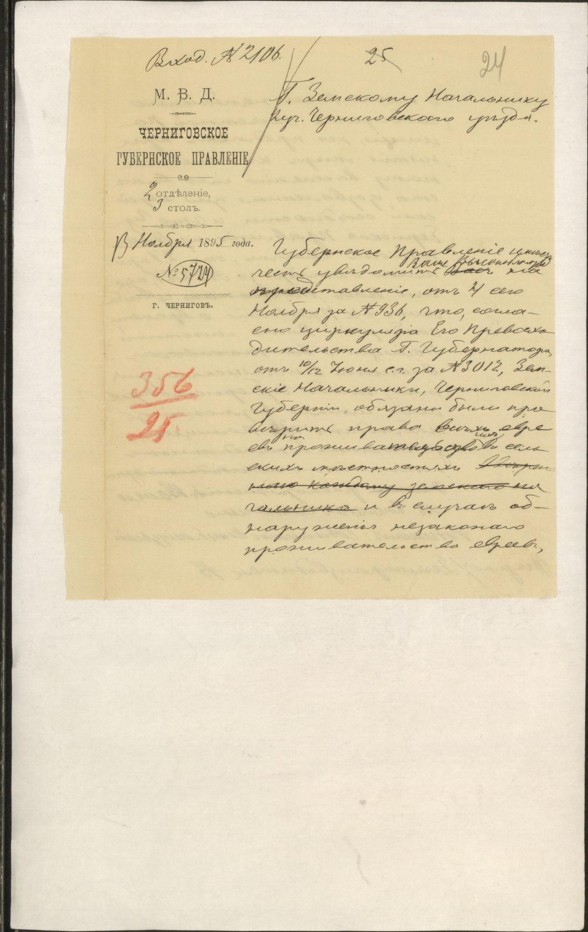 Вход. № 2106
25
24
М. В. Д.
ЧЕРНИГОВСКОЕ
ГУБЕРНСКОЕ ПРАВЛЕНІЕ
2 отдѣленіе,
3 столъ.
13 Ноября 1895 года.
№ 5724
Г. ЧЕРНИГОВЪ.
356
25
Г. Земскому Начальнику
уч. Черниговскаго уѣзда.
Губернское Правленіе имѣетъ
честь увѣдомить Ваше Высокоблагородіе на
представленіе, отъ 4 сего
Ноября за № 936, что, согла-
сно циркуляра Его Превосхо-
дительства Г. Губернатора,
отъ 10/12 Іюня с. г. за № 3012, Зем-
скіе Начальники, Черниговской
Губерніи, обязаны были про-
вѣрить права всѣхъ евре
евъ на проживательство въ сель-
скихъ мѣстностяхъ
каждому земскаго на
чальника и въ случаѣ об-
наруженія незаконнаго
проживательства евреевъ,